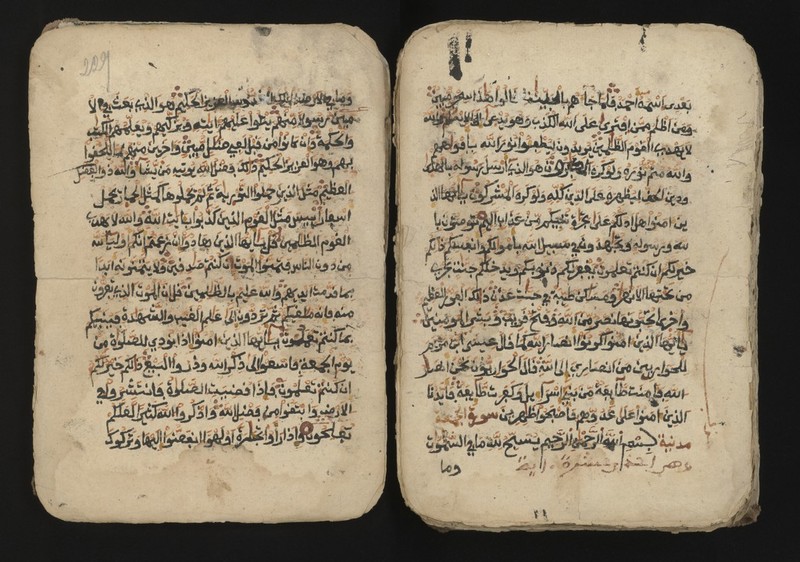 بعدى اسمه احمد فلما جاءهم بالبينت قالوا هذا سحر مبين
ومن اظلم ممن افترى على الله الكذب وهو يدعى الى الاسلام والله
لا يهدى القوم الظلمين يريدون ليطفوا نور الله بافواههم
والله متم نوره ولو كره الكفرون هو الذى ارسل رسوله بالهدى
ودين الحق ليظهره على الدين كله ولو كره المشركون يايها الذ
ين امنوا هل ادلكم على تجرة تنجيكم من عذاب اليم تومنون با
لله ورسوله وتجهدون في سبيل الله باموالكم وانفسكم ذالكم
خير لكم ان كنتم تعلمون يغفر لكم ذنوبكم ويدخلكم جنت تجرى
من تحتها الانهر ومسكن طيبة في جنت عدن ذالك الفوز العظيم
واخرى تحبونها نصر من الله وفتح قريب وبشر المومنين
يايها الذين امنوا كونوا انصارا لله كما قال عيسى ابن مريم
للحواريين من انصارى الى الله قال الحواريون نحن انصار
الله فامنت طايفة من بني اسراءيل وكفرت طايفة فايدنا
الذين امنوا على عدوهم فاصبحوا ظهرين سورة الجمعة
مدنية بسم الله الرحمن الرحيم يسبح لله ما في السموت
وهي احدى عشرة ءاية
وما
229
وما في الارض الملك القدوس العزيز الحكيم هو الذى بعث في الا
ميين رسولا منهم يتلوا عليهم ءايته ويزكيهم ويعلمهم الكتب
والحكمة وان كانوا من قبل لفي ضلل مبين وءاخرين منهم لما يلحقوا
بهم وهو العزيز الحكيم ذلك فضل الله يوتيه من يشاء والله ذو الفضل
العظيم مثل الذين حملوا التورية ثم لم يحملوها كمثل الحمار يحمل
اسفارا بيس مثل القوم الذين كذبوا بايت الله والله لا يهدى
القوم الظلمين قل يايها الذين هادوا ان زعمتم انكم اولياء لله
من دون الناس فتمنوا الموت ان كنتم صدقين ولا يتمنونه ابدا
بما قدمت ايديهم والله عليم بالظلمين قل ان الموت الذى تفرون
منه فانه ملقيكم ثم تردون الى علم الغيب والشهدة فينبيكم
بما كنتم تعملون يايها الذين امنوا اذا نودى للصلوة من
يوم الجمعة فاسعوا الى ذكر الله وذروا البيع ذلكم خير لكم
ان كنتم تعلمون فاذا قضيت الصلوة فانتشروا في
الارض وابتغوا من فضل الله واذكروا الله كثيرا لعلكم
تفلحون واذا راوا تجرة او لهوا انفضوا اليها وتركوك